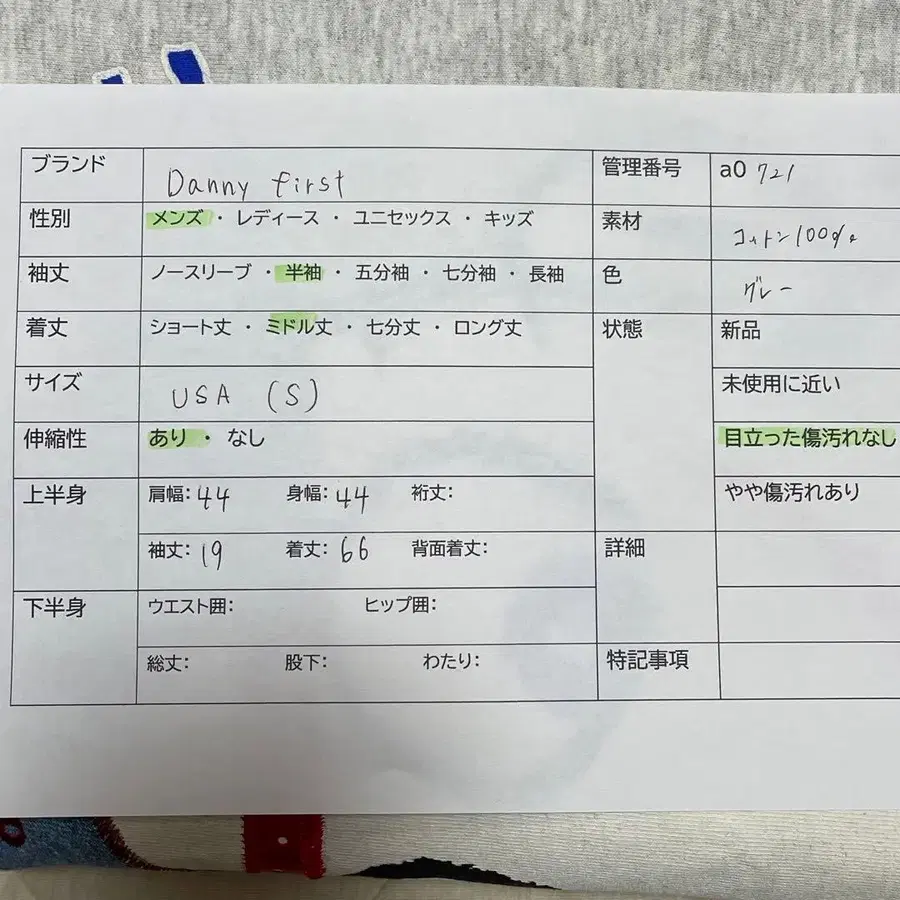 ブランド Danny first 管理番号 a0 721
性別 メンズ ・ レディース ・ ユニセックス ・ キッズ 素材 コットン100%
袖丈 ノースリーブ ・ 半袖 ・ 五分袖 ・ 七分袖 ・ 長袖 色 グレー
着丈 ショート丈 ・ ミドル丈 ・ 七分丈 ・ ロング丈 状態 新品
サイズ USA (S) 未使用に近い
伸縮性 あり ・ なし 目立った傷汚れなし
上半身 肩幅: 44 身幅: 44 裄丈: やや傷汚れあり
袖丈: 19 着丈: 66 背面着丈: 詳細
下半身 ウエスト囲: ヒップ囲:
総丈: 股下: わたり: 特記事項